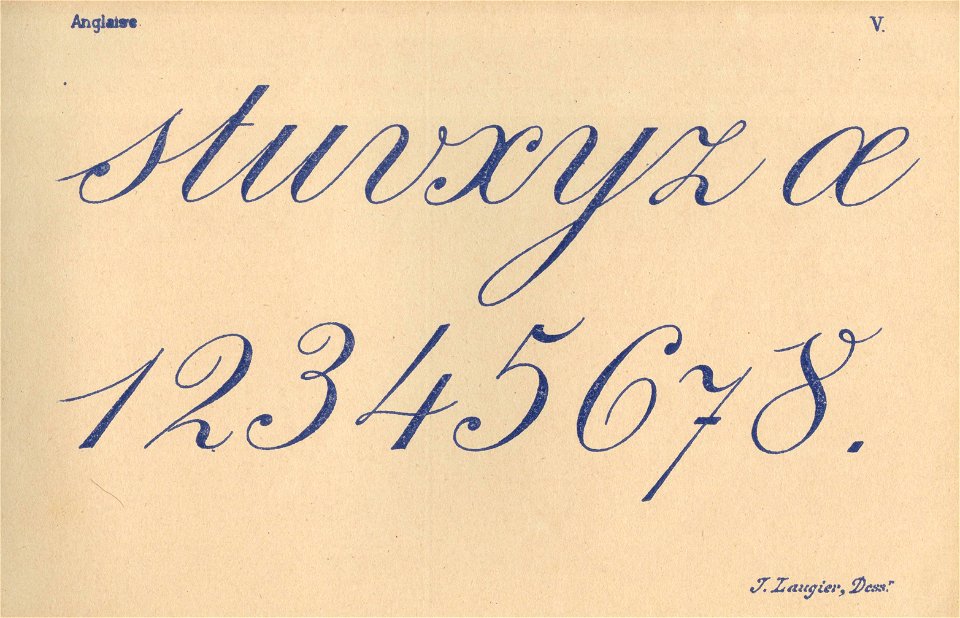 Anglaise V.
stuvxyz œ
12345678.
J. Laugier, Dessr